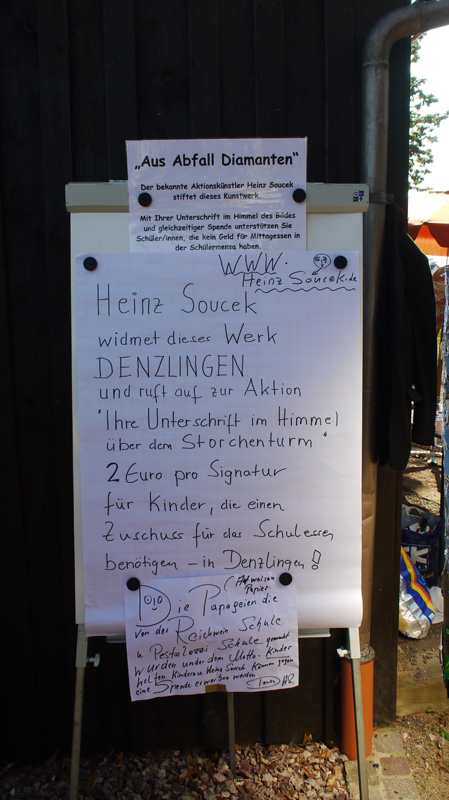 „Aus Abfall Diamanten"
Der bekannte Aktionskünstler Heinz Soucek
stiftet dieses Kunstwerk.
Mit Ihrer Unterschrift im Himmel des Bildes
und gleichzeitiger Spende unterstützen Sie
Schüler/innen, die kein Geld für Mittagessen in
der Schülermensa haben.
WWW.
Heinz Soucek.de
Heinz Soucek
widmet dieses Werk
DENZLINGEN
und ruft auf zur Aktion
"Ihre Unterschrift im Himmel
über dem Storchenturm"
2 Euro pro Signatur
für Kinder, die einen
Zuschuss für das Schulessen
benötigen – in Denzlingen!
Papier
Die Papageien die
von der Reichwein Schule
u. Pestalozzi Schule gemacht
wurden unter dem Motto. Kinder
helfen Kindern
eine Spende erworben werden